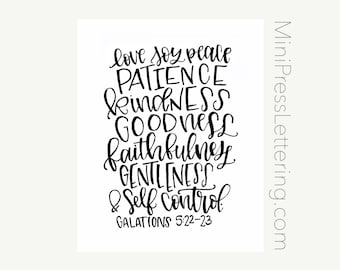 love joy peace
PATIENCE
kindNESS
GOODNESS
faithfulness
GENTLENESS
& Self Control
GALATIONS 5:22-23
MiniPressLettering.com